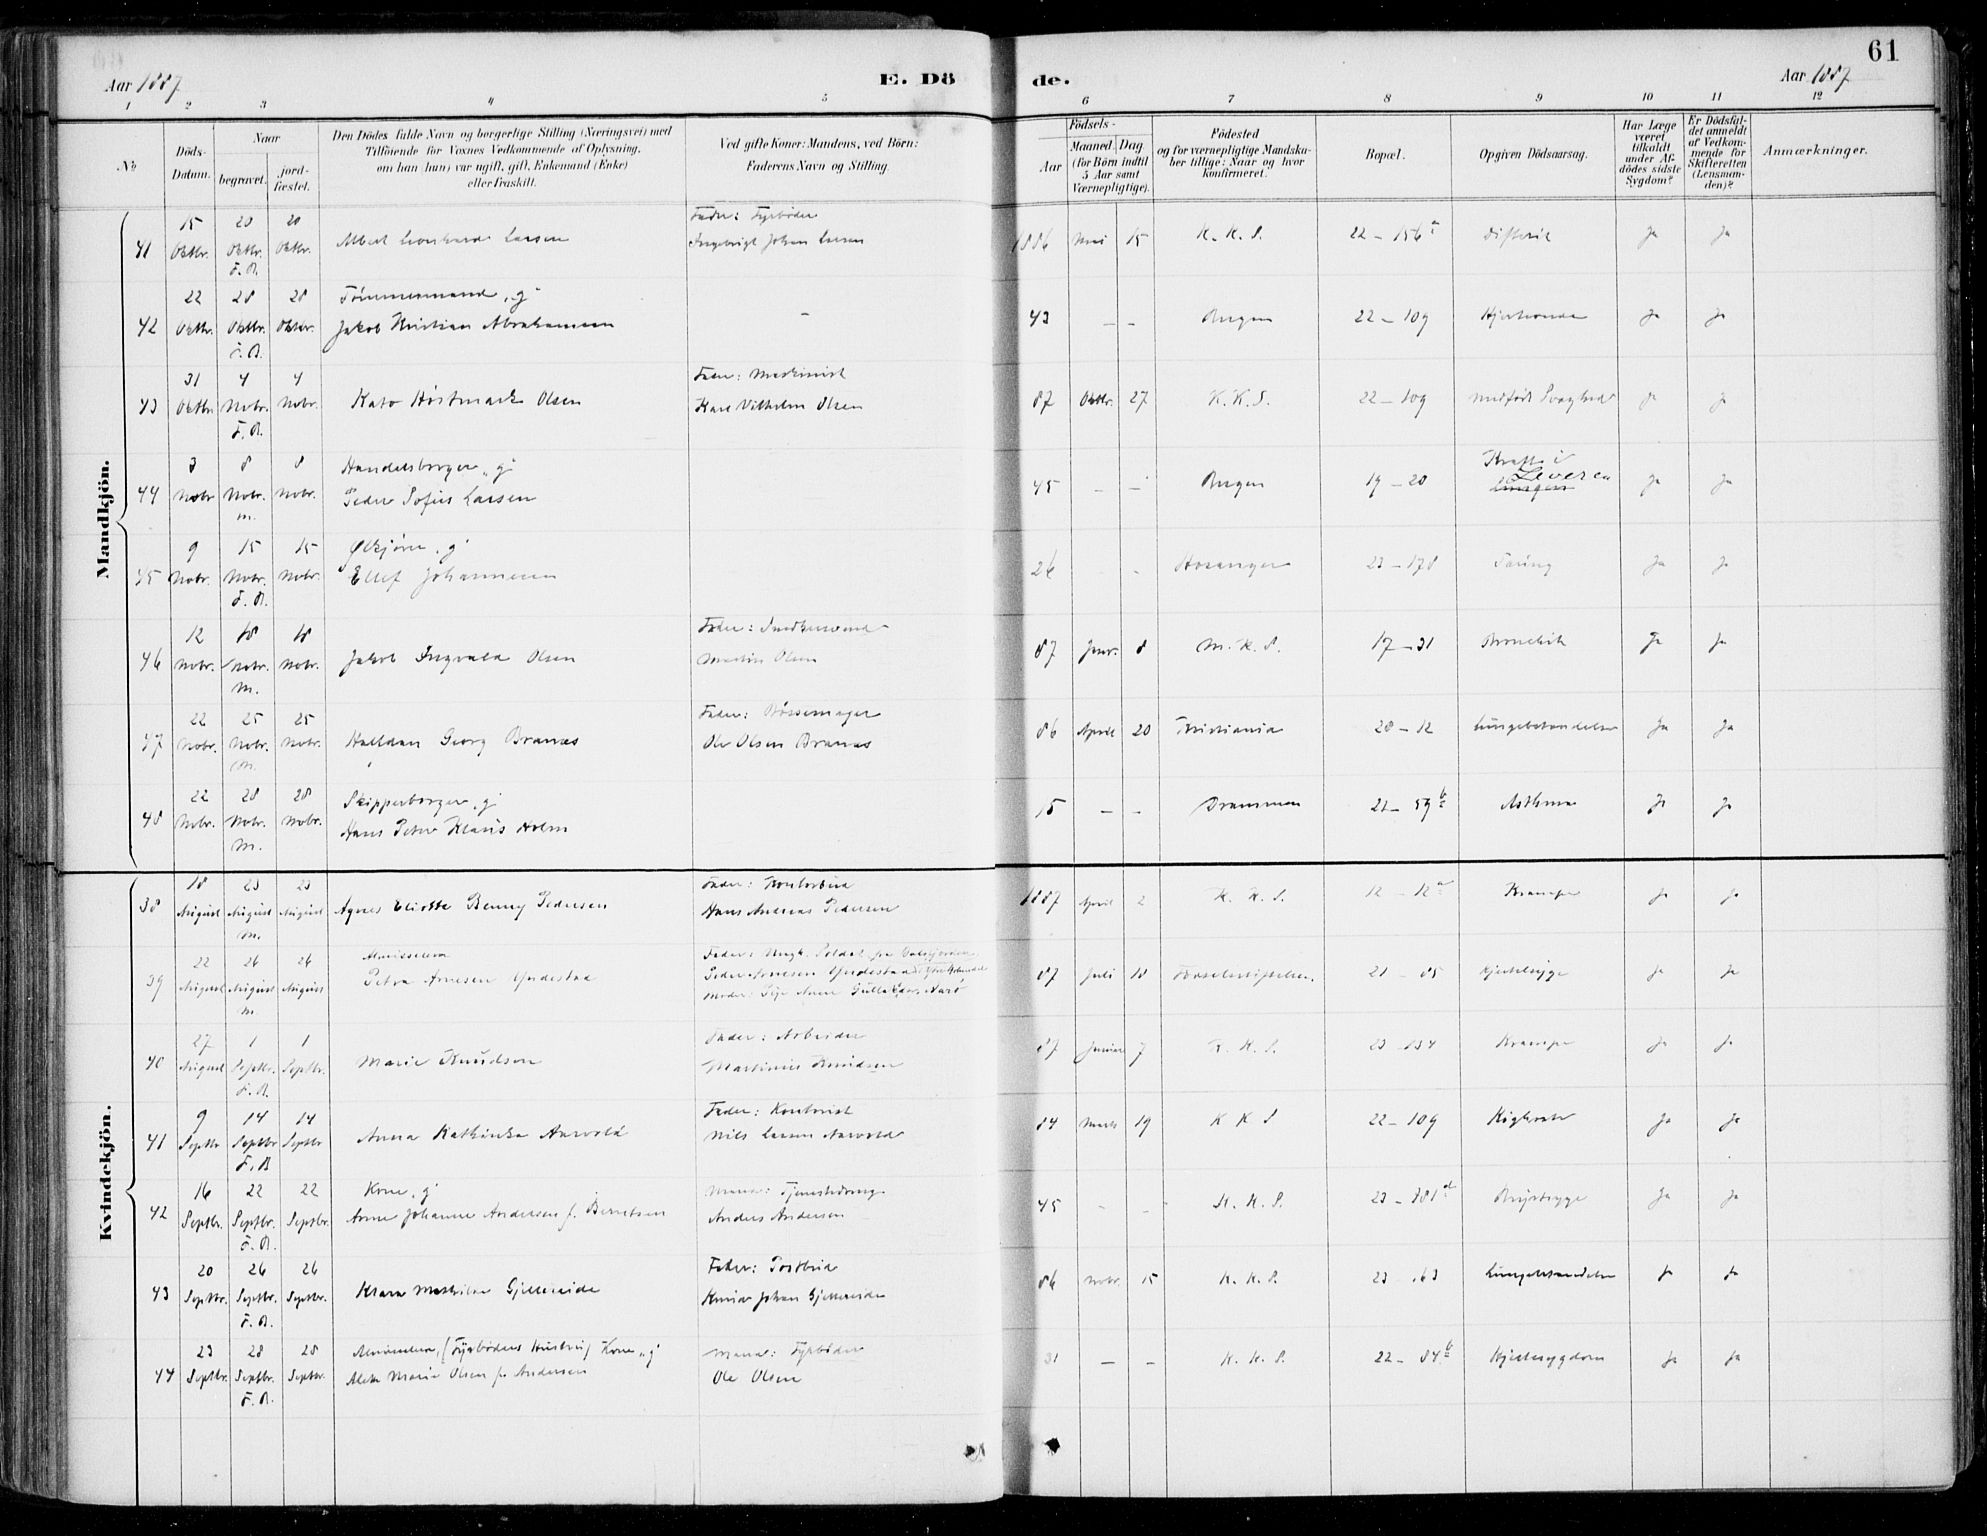 61
Aar 1887
E. Dö
de.
Aar 1887
1 2 3 4 5 6 7 8 9 10 11 12
No
Döds-Datum.
Naar
begravet.
jord-fæstet.
Den Dödes fulde Navn og borgerlige Stilling (Næringsvei) med
Tilföiende for Voxnes Vedkommende af Oplysning,
om han (hun) var ugift, gift, Enkemand (Enke)
eller fraskilt.
Ved gifte Koner: Mandens, ved Börn:
Faderens Navn og Stilling.
Födsels-
Aar
Maaned. Dag
(for Börn indtil
5 Aar samt
Værnepligtige).
Födested
og for værnepligtige Mandska-
ber tillige: Naar og hvor
konfirmeret.
Bopæl.
Opgiven Dödsaarsag.
Har Læge
været
tilkaldt
under Af-
dødes sidste
Sygdom?
Er Dödsfal-
det anmeldt
af Vedkom-
mende for
Skifteretten
(Lensman-
den)?
Anmærkninger.
Mandkjön.
15 20 20 Fader: Fyrbøder
41 Oktbr. Oktbr. Oktbr. Albert Leonhard Larsen Ingebrigt Johan Larsen 1886 Mai 15 K. K. S. 22 – 156 a Difterit Ja Ja
F. A.
22 28 28 Tømmermand "g"
42 Oktbr. Oktbr. Oktbr. Jakob Kristian Abrahamsen – 43 – – Bergen 22 – 109 Ja Ja
31 4 4 Fader: Maskinist
43 Oktbr Novbr. Novbr. Kato Høstmark Olsen Karl Vilhelm Olsen 87 Oktbr. 27 K. K. S. 22 – 109 medfødt Svaghed Ja Ja
F. A.
3 8 8 Handelsborger "g" Kræft i
44 Novbr Novbr. Novbr. Peder Sofus Larsen 45 – – Bergen 19 – 20 Leveren Ja Ja
M.
9 15 15 "g"
45 Novbr. Novbr. Novbr. Ellef Johannesen 26 – – Hosanger 23 – 178 Tæring Ja Ja
F. A.
12 18 18 Fader: Snedkersvend
46 Novbr. Novbr. Novbr. Jakob Ingvald Olsen Martin Olsen 87 Janr. 8 M. K. S. 17 – 31 Bronchit Ja Ja
M.
22 25 25 Fader: Bøssemager
47 Novbr. Novbr. Novbr. Halfdan Georg Branæs Ole Olsen Branæs 86 April 20 Kristiania 20 – 12 Lungebetændelse Ja Ja
M.
22 28 28 Skipperborger "g"
48 Novbr. Novbr. Novbr. Hans Peter Klaus Holm 15 – – Drammen 22 – 59 b Asthma Ja Ja
M.
Kvindekjön.
18 23 23 Fader: Kontorbud
38 August August August Agnes Benny Pedersen Hans Andreas Pedersen 1887 April 2 K. K. S. 12 – 12 a Krampe Ja Ja
M.
22 26 26 Almisselem Fader: Ungk. Soldat fra
39 August August August Petra Arnesen Peder Arnesen 87 Juli 18 Fødselsstiftelsen. 21 – 85 Hjertesyge Ja Ja
M. Moder: Pige Anne
27 1 1 Fader: Arbeider
40 August Septbr. Septbr. Marie Knudsen Martinus Knudsen 87 Januar 7 K. K. S. 23 – 134 Krampe Ja Ja
F. A.
9 14 14 Fader: Kontorist
41 Septbr Septbr Septbr Anna Kathinka Aarvold Nils Larsen Aarvold 84 Marts 19 K K S 22 – 109 Kighoste Ja Ja
F. A
16 22 22 Kone "g" Mand:
42 Septbr. Septbr. Septbr. Anne Johanne Andersen f. Berntsen Anders Andersen 45 – – K. K. S. 23 – 381 d Brystsyge Ja Ja
F. A.
20 26 26 Fader: Postbud
43 Septbr. Septbr. Septbr. Klara Mathilde Gjellereide Knud Johan Gjellereide 86 Novbr. 15 K. K. S. 23 – 163 Lungebetændelse Ja Ja
F. A.
23 28 28 Almisselem, (Fyrbøders Hustru) Kone "g" Mand: Fyrbøder
44 Septbr. Septbr. Septbr. Marie Olsen f. Andersen Ole Olsen 31 – – K. K. S. 22 – 84 b Hjertesygdom Ja Ja
F. A.